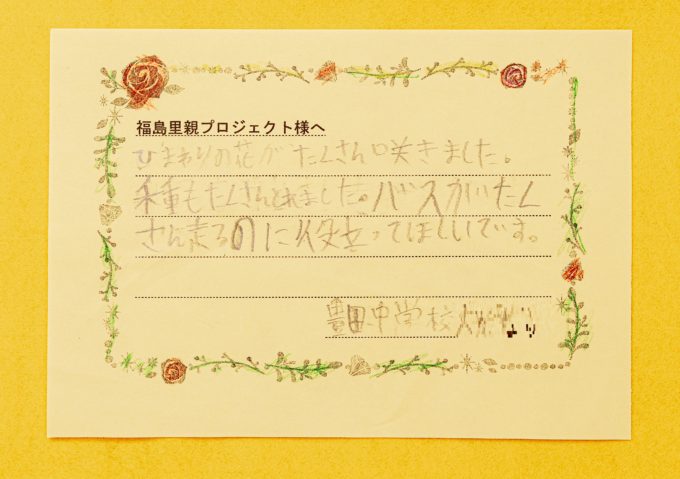 福島里親プロジェクト様へ
ひまわりの花がたくさん咲きました。
種もたくさんとれました。バスがたく
さん走るのに役立ってほしいです。
豊田中学校
より